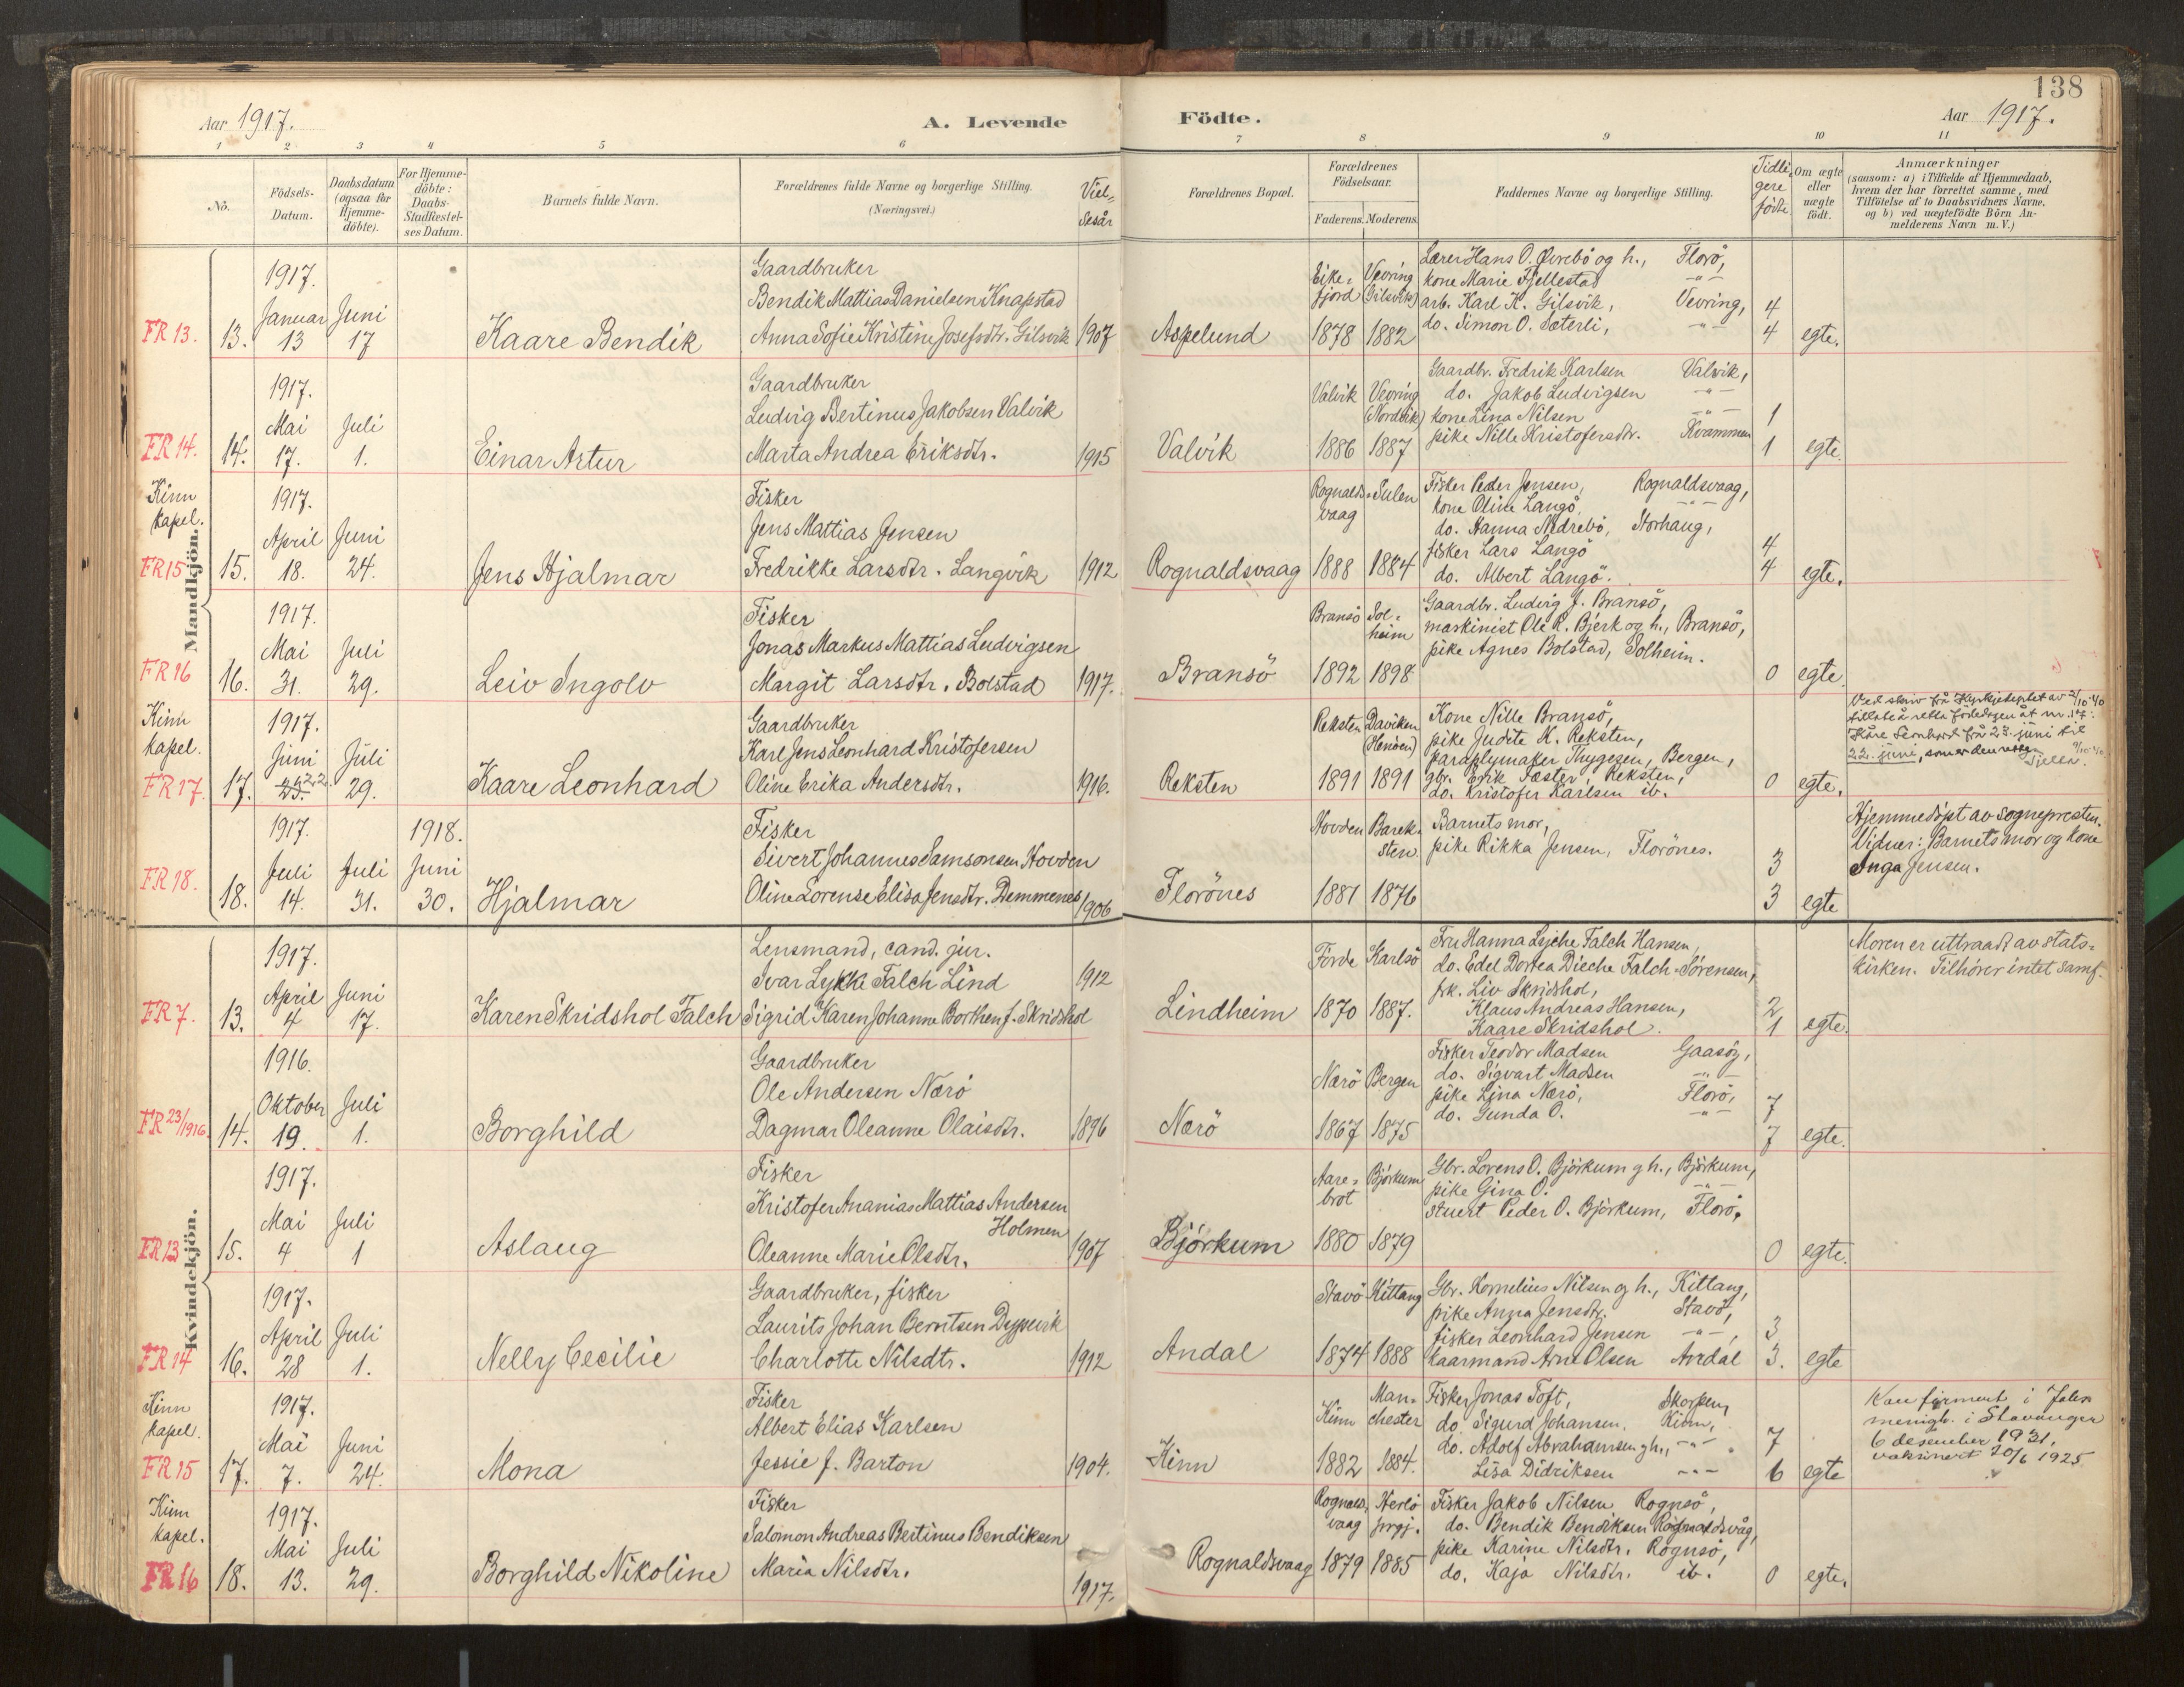 138
Aar 1917.
A. Levende
Födte.
Aar 1917.
1 2 3 4 5 6 7 8 9 10 11
No.
Födsels-Datum.
Daabsdatum (ogsaa for Hjemme-döbte).
For Hjemme-döbte: Daabs-Stadfæstel-ses Datum.
Barnets fulde Navn.
Forældrenes fulde Navne og borgerlige Stilling. (Næringsvei.)
Viel-sesår
Forældrenes Bopæl.
Forældrenes Födselsaar.
Faderens. Moderens.
Faddernes Navne og borgerlige Stilling.
Tidligere födte
Om ægte eller uægte födt.
Anmærkninger
(saasom: a) i Tilfælde af Hjemmedaab,
hvem der har forrettet samme, med
Tilföielse af to Daabsvidners Navne,
og b) ved uægtefödte Börn An-
melderens Navn m. V.)
Mandkjön.
FR 13. 13.
1917. Januar 13
Juni 17
Kaare Bendik
Gaardbruker
Bendik Mattias Danielsen Knapstad
Anna Sofie Kristine Josefsdtr. Gilsvik 1907
Aspelund
Eikefjord 1878
Vevring (Gilsvik) 1882
Lærer Hans O. Øvrebö og h., Florö,
kone Marie Fjellestad -"-
arb. Karl K. Gilsvik, Vevring,
do. Simon O. Sæterli, -"-
4
4 egte.
FR 14. 14.
1917. Mai 17.
Juli 1.
Einar Artur
Gaardbruker
Ludvig Bertinus Jakobsen Valvik
Marta Andrea Eriksdtr. 1915
Valvik
Valvik 1886
Vevring (Nordvik) 1887
Gaardbr. Fredrik Karlsen Valvik,
do. Jakob Ludvigsen -"-
kone Lina Nilsen -"-
pike Nille Kristofersdtr. Kvammen
1
1 egte.
Kinn kapel.
FR 15 15.
1917. April 18.
Juni 24.
Jens Hjalmar
Fisker
Jens Mattias Jensen
Fredrikke Larsdtr. Langövik 1912
Rognaldsvaag
Rognaldsvaag 1888
Sulen 1884
Fisker Peder Jensen, Rognaldsvaag,
kone Oline Langö, -"-
do. Hanna Nedrebö, Storhaug,
fisker Lars Langö
do. Albert Langö.
4
4 egte.
FR 16 16.
1917. Mai 31.
Juli 29.
Leiv Ingolv
Fisker
Jonas Markus Mattias Ludvigsen
Margit Larsdtr. Bolstad 1917.
Bransö
Bransö 1892
Solheim 1898
Gaardbr. Ludvig J. Bransö,
maskinist Ole R. Bjerk og h., Bransö,
pike Agnes Bolstad, Solheim.
0 egte.
Kinn kapel.
FR 17. 17.
1917. Juni 25. 22.
Juli 29.
Kaare Leonhard
Gaardbruker
Karl Jens Leonhard Kristofersen
Oline Erika Andersdtr. 1916.
Reksten
Reksten 1891
Daviken (Henöen) 1891
Kone Nille Bransö,
pike Judite K. Reksten,
paraplymaker Thygesen, Bergen,
gbr. Erik Fæster, Reksten,
do. Kristofer Karlsen ib.
0 egte.
Ved skriv frå Kyrkjedeptet av 2/10 40
tillate å retta födedagen åt nr. 17:
Kåre Leonhard frå 25. juni til
22. juni, som er den rette.
FR 18. 18.
1917. Juli 14.
Juli 31.
1918. Juni 30.
Hjalmar
Fisker
Sivert Johannes Samsonsen Hovden
Oline Lorense Elisa Jensdtr. Demmenes 1906
Florönes
Hovden 1881
Bareksten 1876
Barnets mor,
pike Rikka Jensen, Florönes.
3
3 egte
Hjemmedöpt av sognepresten.
Vidner: Barnets mor og kone
Inga Jensen.
Kvindekjön.
FR 7. 13.
1917. April 4
Juni 17.
Karen Skridshol Falch
Lensmand, cand. jur.
Ivar Lykke Falch Lind 1912
Sigrid Karen Johanne Borthen f. Skridshol
Lindheim
Förde 1870
Karlsö 1887.
Fru Hanna Lyche Falch Hansen,
do. Edel Dortea Dieche Falch-Sörensen,
frk. Liv Skridshol,
Klaus Andreas Hansen,
Kaare Skridshol.
2
1 egte.
Moren er uttraadt av stats-
kirken. Tilhörer intet samf.
FR 23/1916. 14.
1916. Oktober 19.
Juli 1.
Borghild
Gaardbruker
Ole Andersen Nærö
Dagmar Oleanne Olaisdtr. 1896
Nærö
Nærö 1867
Bergen 1875
Fisker Teodor Madsen Gaasöy,
do. Sigvart Madsen -"-
pike Lina Nærö, Florö,
do. Gunda O. -"-
7
7 egte.
FR 13 15.
1917. Mai 4
Juli 1
Aslaug
Fisker
Kristofer Ananias Mattias Andersen
Holmen
Oleanne Marie Olsdtr. 1907
Björkum
Aarebrot 1880
Björkum 1879
Gbr. Lorens O. Björkum og h., Björkum,
pike Gina O. -"-
stuert Peder O. Björkum, Florö.
0 egte.
FR 14 16.
1917. April 28
Juli 1.
Nelly Cecilie
Gaardbruker, fisker
Laurits Johan Berntsen Dypevik
Charlotte Nilsdtr. 1912
Andal
Stavö 1874
Kittang 1888
Gbr. Kornelius Nilsen og h., Kittang,
pike Anna Jensdtr. Stavö,
fisker Leonhard Jensen -"-,
kaarmand Arne Olsen Avrdal
3
3. egte
Kinn kapel.
FR 15 17.
1917. Mai 7.
Juni 24.
Mona
Fisker
Albert Elias Karlsen
Jessie f. Barton 1904.
Kinn
Kinn 1882
Manchester 1884.
Fisker Jonas Toft, Skorpen,
do. Sigurd Johansen. Kinn,
do. Adolf Abrahamsen og h., -"-
Lisa Didriksen -"-
7
6 egte
Konfirmert i
menigh. i Stavanger
6 desember 1931,
vaksinert 20/6 1925
Kinn kapel.
FR 16 18.
1917. Mai 13.
Juli 29.
Borghild Nikoline
Fisker
Salomon Andreas Bertinus Bendiksen
Maria Nilsdtr. 1917.
Rognaldsvaag
Rognaldsvaag 1879
Herlö prgj. 1885
Fisker Jakob Nilsen Rognsö,
do. Bendik Bendiksen Rognaldsvåg,
pike Karine Nilsdtr. Rognsö,
do. Kaja Nilsdtr. ib.
0 egte.